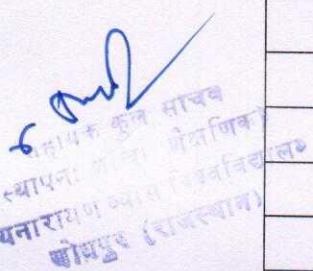 सहायक कुल सचिव
स्थापना शैक्षणिक
यनारायण व्यास विश्वविद्यालय
जोधपुर (राजस्थान)